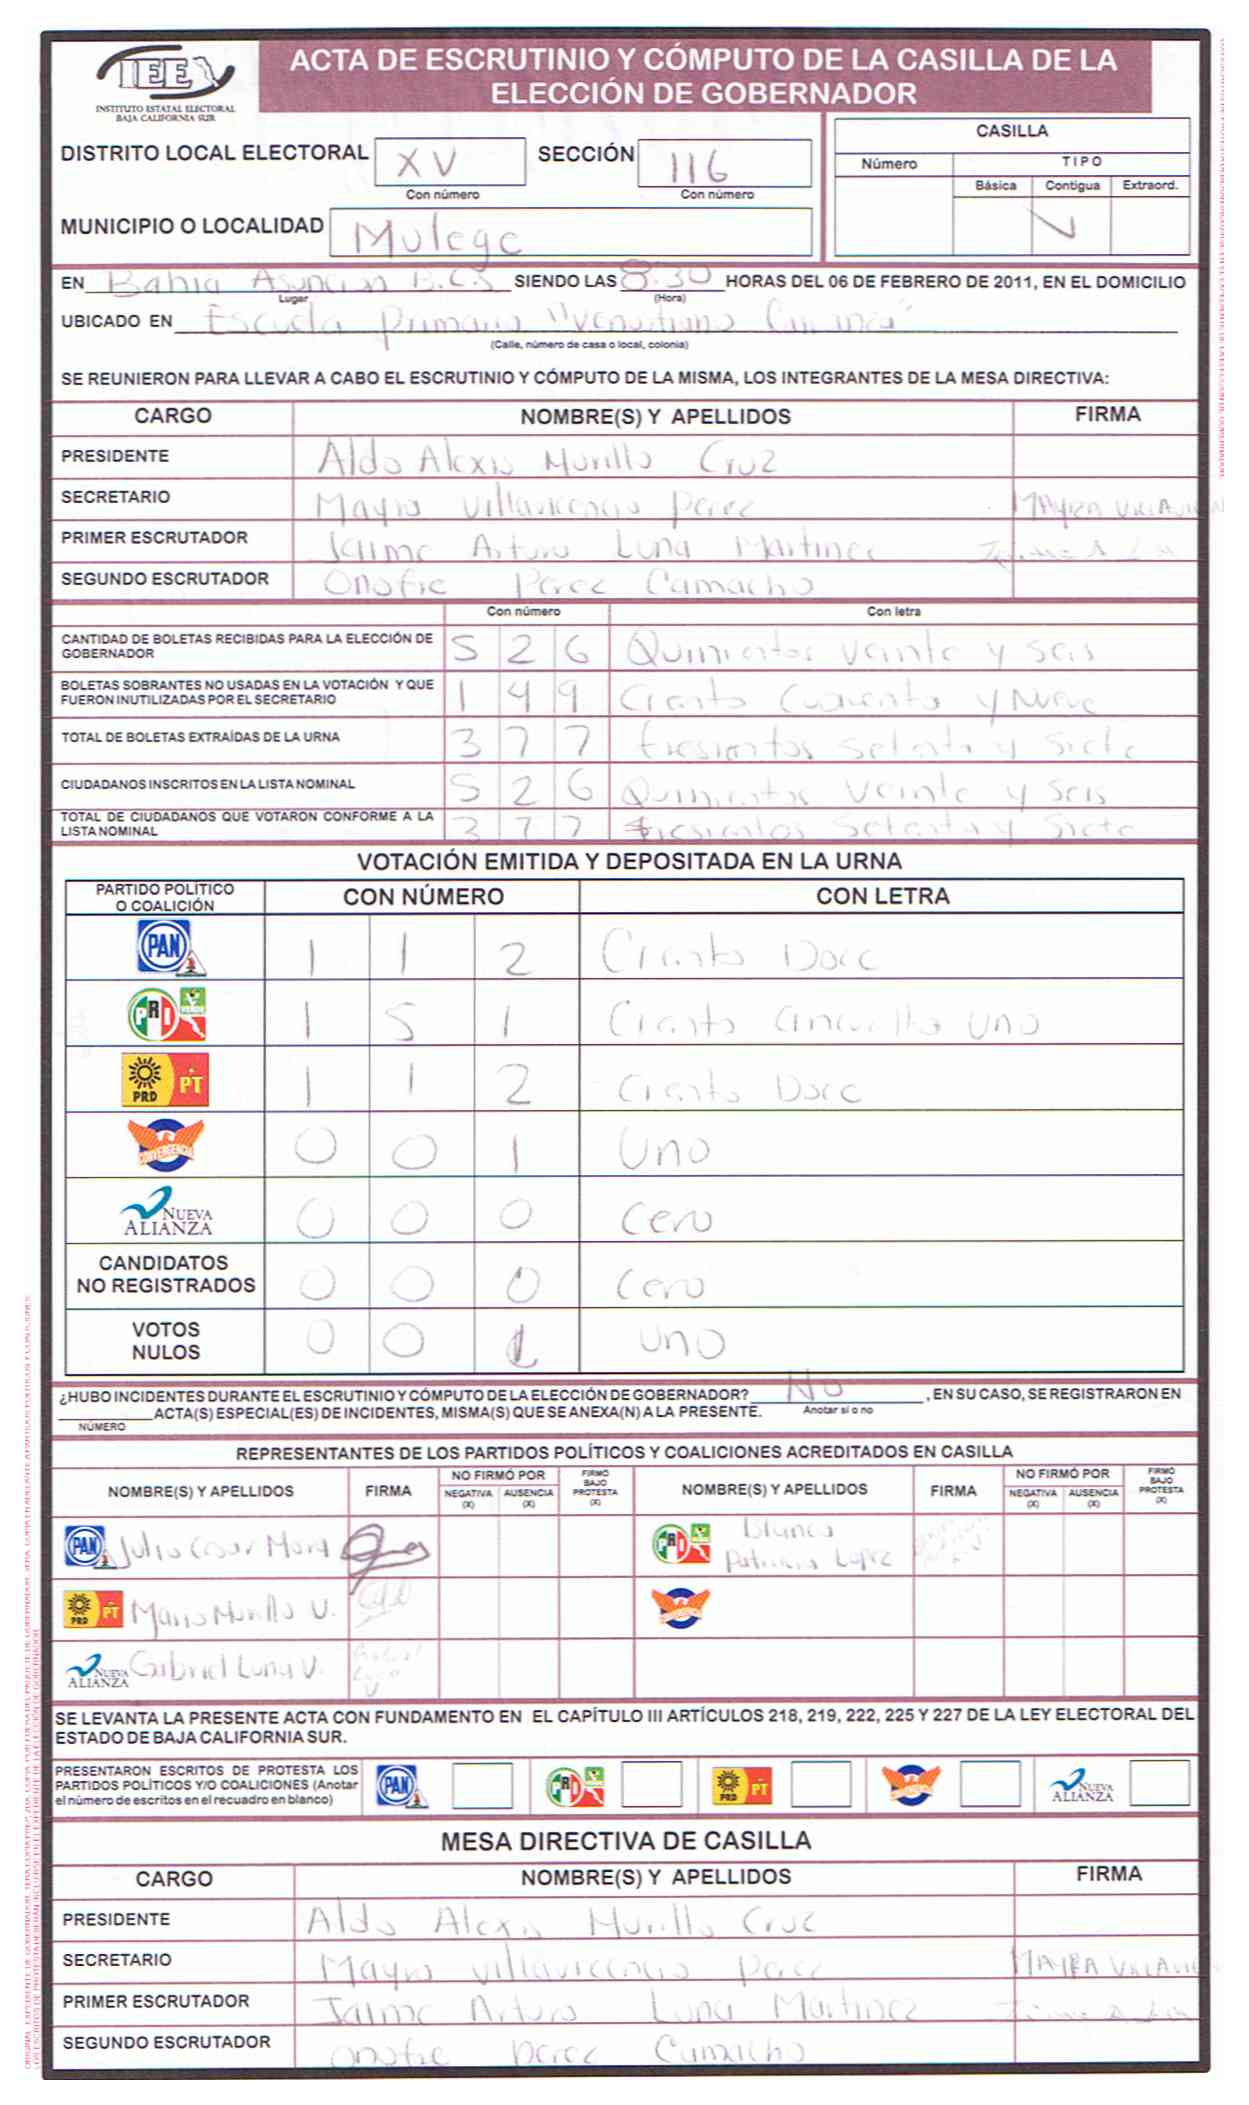 IEE
INSTITUTO ESTATAL ELECTORAL
BAJA CALIFORNIA SUR
ACTA DE ESCRUTINIO Y CÓMPUTO DE LA CASILLA DE LA
ELECCIÓN DE GOBERNADOR
DISTRITO LOCAL ELECTORAL XV SECCIÓN 116
Con número Con número
CASILLA
Número TIPO
Básica Contigua Extraord.
MUNICIPIO O LOCALIDAD Mulege
EN Bahia Asuncion B.C.S SIENDO LAS 8:30 HORAS DEL 06 DE FEBRERO DE 2011, EN EL DOMICILIO
Lugar (Hora)
UBICADO EN Escuela Primaria "Venustiano
(Calle, número de casa o local, colonia)
SE REUNIERON PARA LLEVAR A CABO EL ESCRUTINIO Y CÓMPUTO DE LA MISMA, LOS INTEGRANTES DE LA MESA DIRECTIVA:
CARGO NOMBRE(S) Y APELLIDOS FIRMA
PRESIDENTE Aldo Alexis Murillo Cruz
SECRETARIO Mayra Villavicencio Perez MAYRA
PRIMER ESCRUTADOR Jaime Arturo Luna Martinez
SEGUNDO ESCRUTADOR Onofre Perez Camacho
Con número Con letra
CANTIDAD DE BOLETAS RECIBIDAS PARA LA ELECCIÓN DE
GOBERNADOR 5 2 6 Quinientos Veinte y Seis
BOLETAS SOBRANTES NO USADAS EN LA VOTACIÓN Y QUE
FUERON INUTILIZADAS POR EL SECRETARIO 1 4 9 Ciento Cuarenta y Nueve
TOTAL DE BOLETAS EXTRAÍDAS DE LA URNA 3 7 7 tresientos Setenta y Siete
CIUDADANOS INSCRITOS EN LA LISTA NOMINAL 5 2 6 Quinientos Veinte y Seis
TOTAL DE CIUDADANOS QUE VOTARON CONFORME A LA
LISTA NOMINAL 3 7 7 tresientos Setenta y Siete
VOTACIÓN EMITIDA Y DEPOSITADA EN LA URNA
PARTIDO POLÍTICO
O COALICIÓN CON NÚMERO CON LETRA
PAN 1 1 2 Ciento Doce
PRI VERDE 1 5 1 Ciento cincuenta uno
PRD PT 1 1 2 Ciento Doce
CONVERGENCIA 0 0 1 Uno
NUEVA ALIANZA 0 0 0 Cero
CANDIDATOS
NO REGISTRADOS 0 0 0 Cero
VOTOS
NULOS 0 0 1 Uno
¿HUBO INCIDENTES DURANTE EL ESCRUTINIO Y CÓMPUTO DE LA ELECCIÓN DE GOBERNADOR? No , EN SU CASO, SE REGISTRARON EN
ACTA(S) ESPECIAL(ES) DE INCIDENTES, MISMA(S) QUE SE ANEXA(N) A LA PRESENTE. Anotar si o no
NÚMERO
REPRESENTANTES DE LOS PARTIDOS POLÍTICOS Y COALICIONES ACREDITADOS EN CASILLA
NOMBRE(S) Y APELLIDOS FIRMA NO FIRMÓ POR NEGATIVA (X) AUSENCIA (X) FIRMÓ BAJO PROTESTA (X) NOMBRE(S) Y APELLIDOS FIRMA NO FIRMÓ POR NEGATIVA (X) AUSENCIA (X) FIRMÓ BAJO PROTESTA (X)
PAN Julio Cesar Mora PRI Blanca
Patricia Lopez
PRD PT Mario Murillo V.
NUEVA ALIANZA Gabriel Luna V.
SE LEVANTA LA PRESENTE ACTA CON FUNDAMENTO EN EL CAPÍTULO III ARTÍCULOS 218, 219, 222, 225 Y 227 DE LA LEY ELECTORAL DEL
ESTADO DE BAJA CALIFORNIA SUR.
PRESENTARON ESCRITOS DE PROTESTA LOS
PARTIDOS POLÍTICOS Y/O COALICIONES (Anotar
el número de escritos en el recuadro en blanco) PAN PRI PRD PT NUEVA ALIANZA
MESA DIRECTIVA DE CASILLA
CARGO NOMBRE(S) Y APELLIDOS FIRMA
PRESIDENTE Aldo Alexis Murillo Cruz
SECRETARIO Mayra Villavicencio Perez MAYRA
PRIMER ESCRUTADOR Jaime Arturo Luna Martinez
SEGUNDO ESCRUTADOR Onofre Perez Camacho